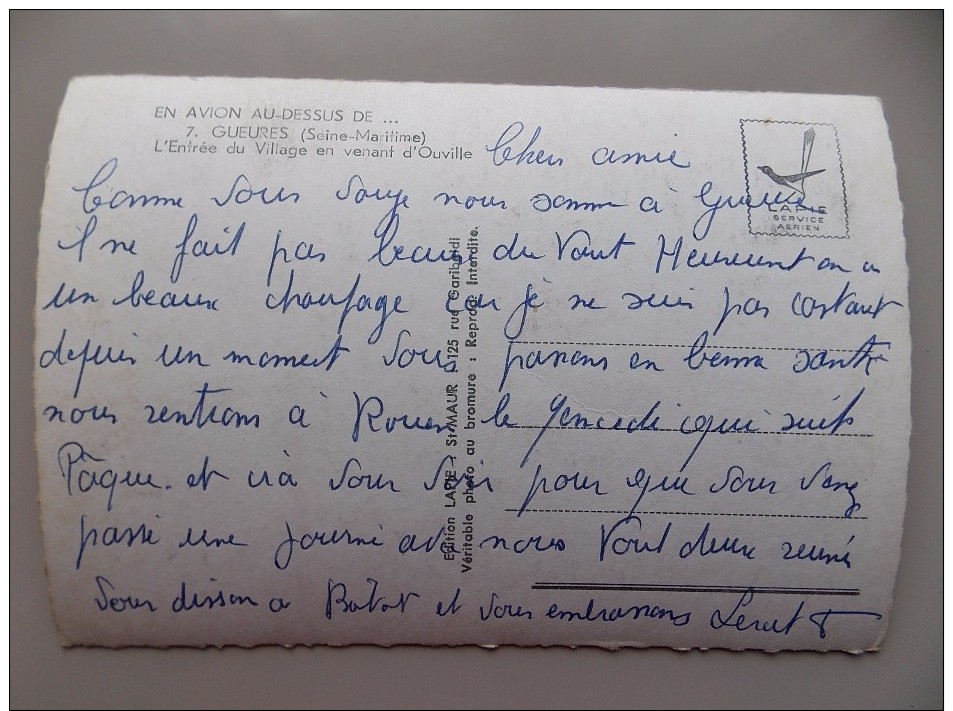 EN AVION AU-DESSUS DE ...
7. GUEURES (Seine-Maritime)
L'Entrée du Village en venant d'Ouville
LAPIE
SERVICE
AERIEN
Edition LAPIE : St-MAUR - 125 rue Garibaldi
Véritable photo au bromure : Reprod. Interdite.
Cher amie
Comme vous voyé nous somme à Gueures
il ne fait pas beaux du Vent Heureument on a
un beaux chaufage car je ne suis pas costaut
depuis un moment Vous pansons en bonne santé
nous rentrons à Rouen le qui suit
Pâque et irà vous voir pour que vous
passé une journé avec nous Tout deux reuni
Vous disson a et vous embrassons